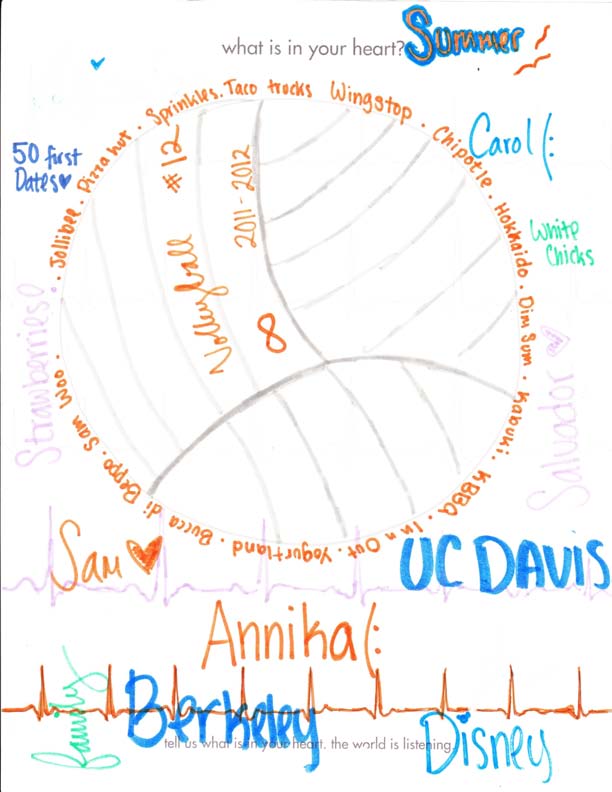 what is in your heart?
Summer
50 first
Dates
Sprinkles. Taco trucks Wingstop · Chipotle · Hokkaido · Dim Sum · Kabuki · KBBQ · In n Out · Yogurtland · Bucca di Beppo · Sam Woo · Jollibee · Pizza hut ·
Carol (:
White
Chicks
#12
2011-2012
Volleyball
8
Strawberries
Salvador
Sam
UC DAVIS
Annika (:
family
Berkeley
Disney
tell us what is in your heart. the world is listening.